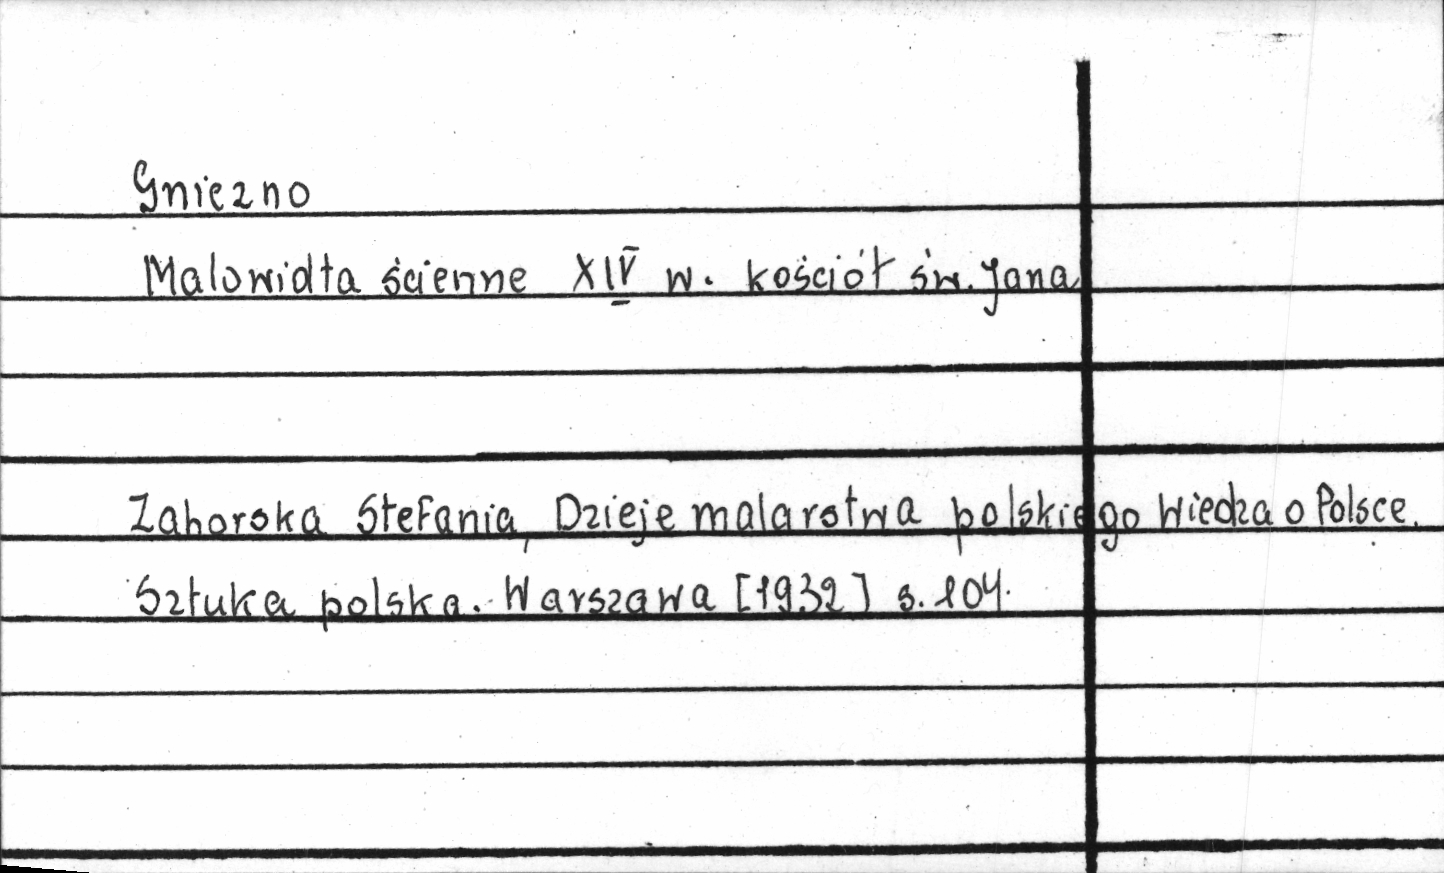 Gniezno
Malowidła ścienne XIV w. kościół św. Jana
Zahorska Stefania, Dzieje malarstwa polskiego Wiedza o Polsce.
Sztuka polska. Warszawa [1932] s. 104.